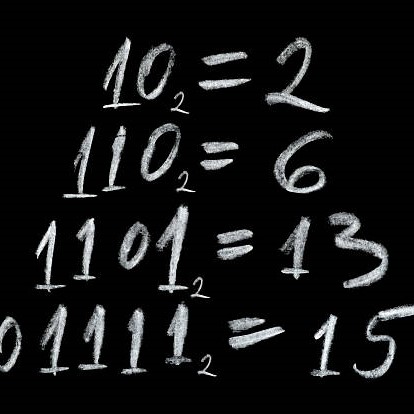 10₂ = 2
110₂ = 6
1101₂ = 13
01111₂ = 15